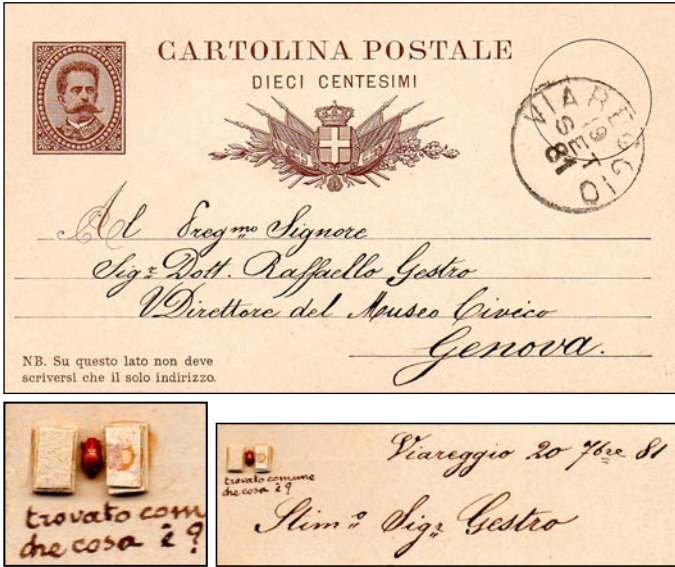 CARTOLINA POSTALE
DIECI CENTESIMI
VIAREGGIO
19
SET
81
Al Preg mo Signore
Sigr Dott. Raffaello Gestro
VDirettore del Museo Civico
Genova.
NB. Su questo lato non deve
scriversi che il solo indirizzo.
trovato com
che cosa è ?
trovato comune
che cosa è ?
Viareggio 20 7bre 81
Stimo Sigr Gestro